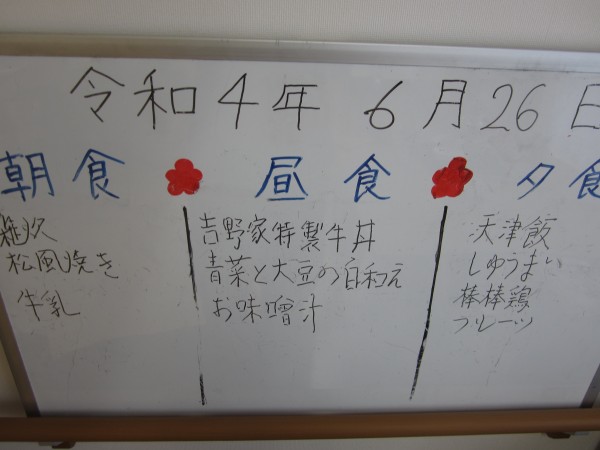 令和4年 6月26日
朝食
雑炊
松風焼き
牛乳
昼食
吉野家特製牛丼
青菜と大豆の白和え
お味噌汁
夕食
天津飯
しゅうまい
棒棒鶏
フルーツ